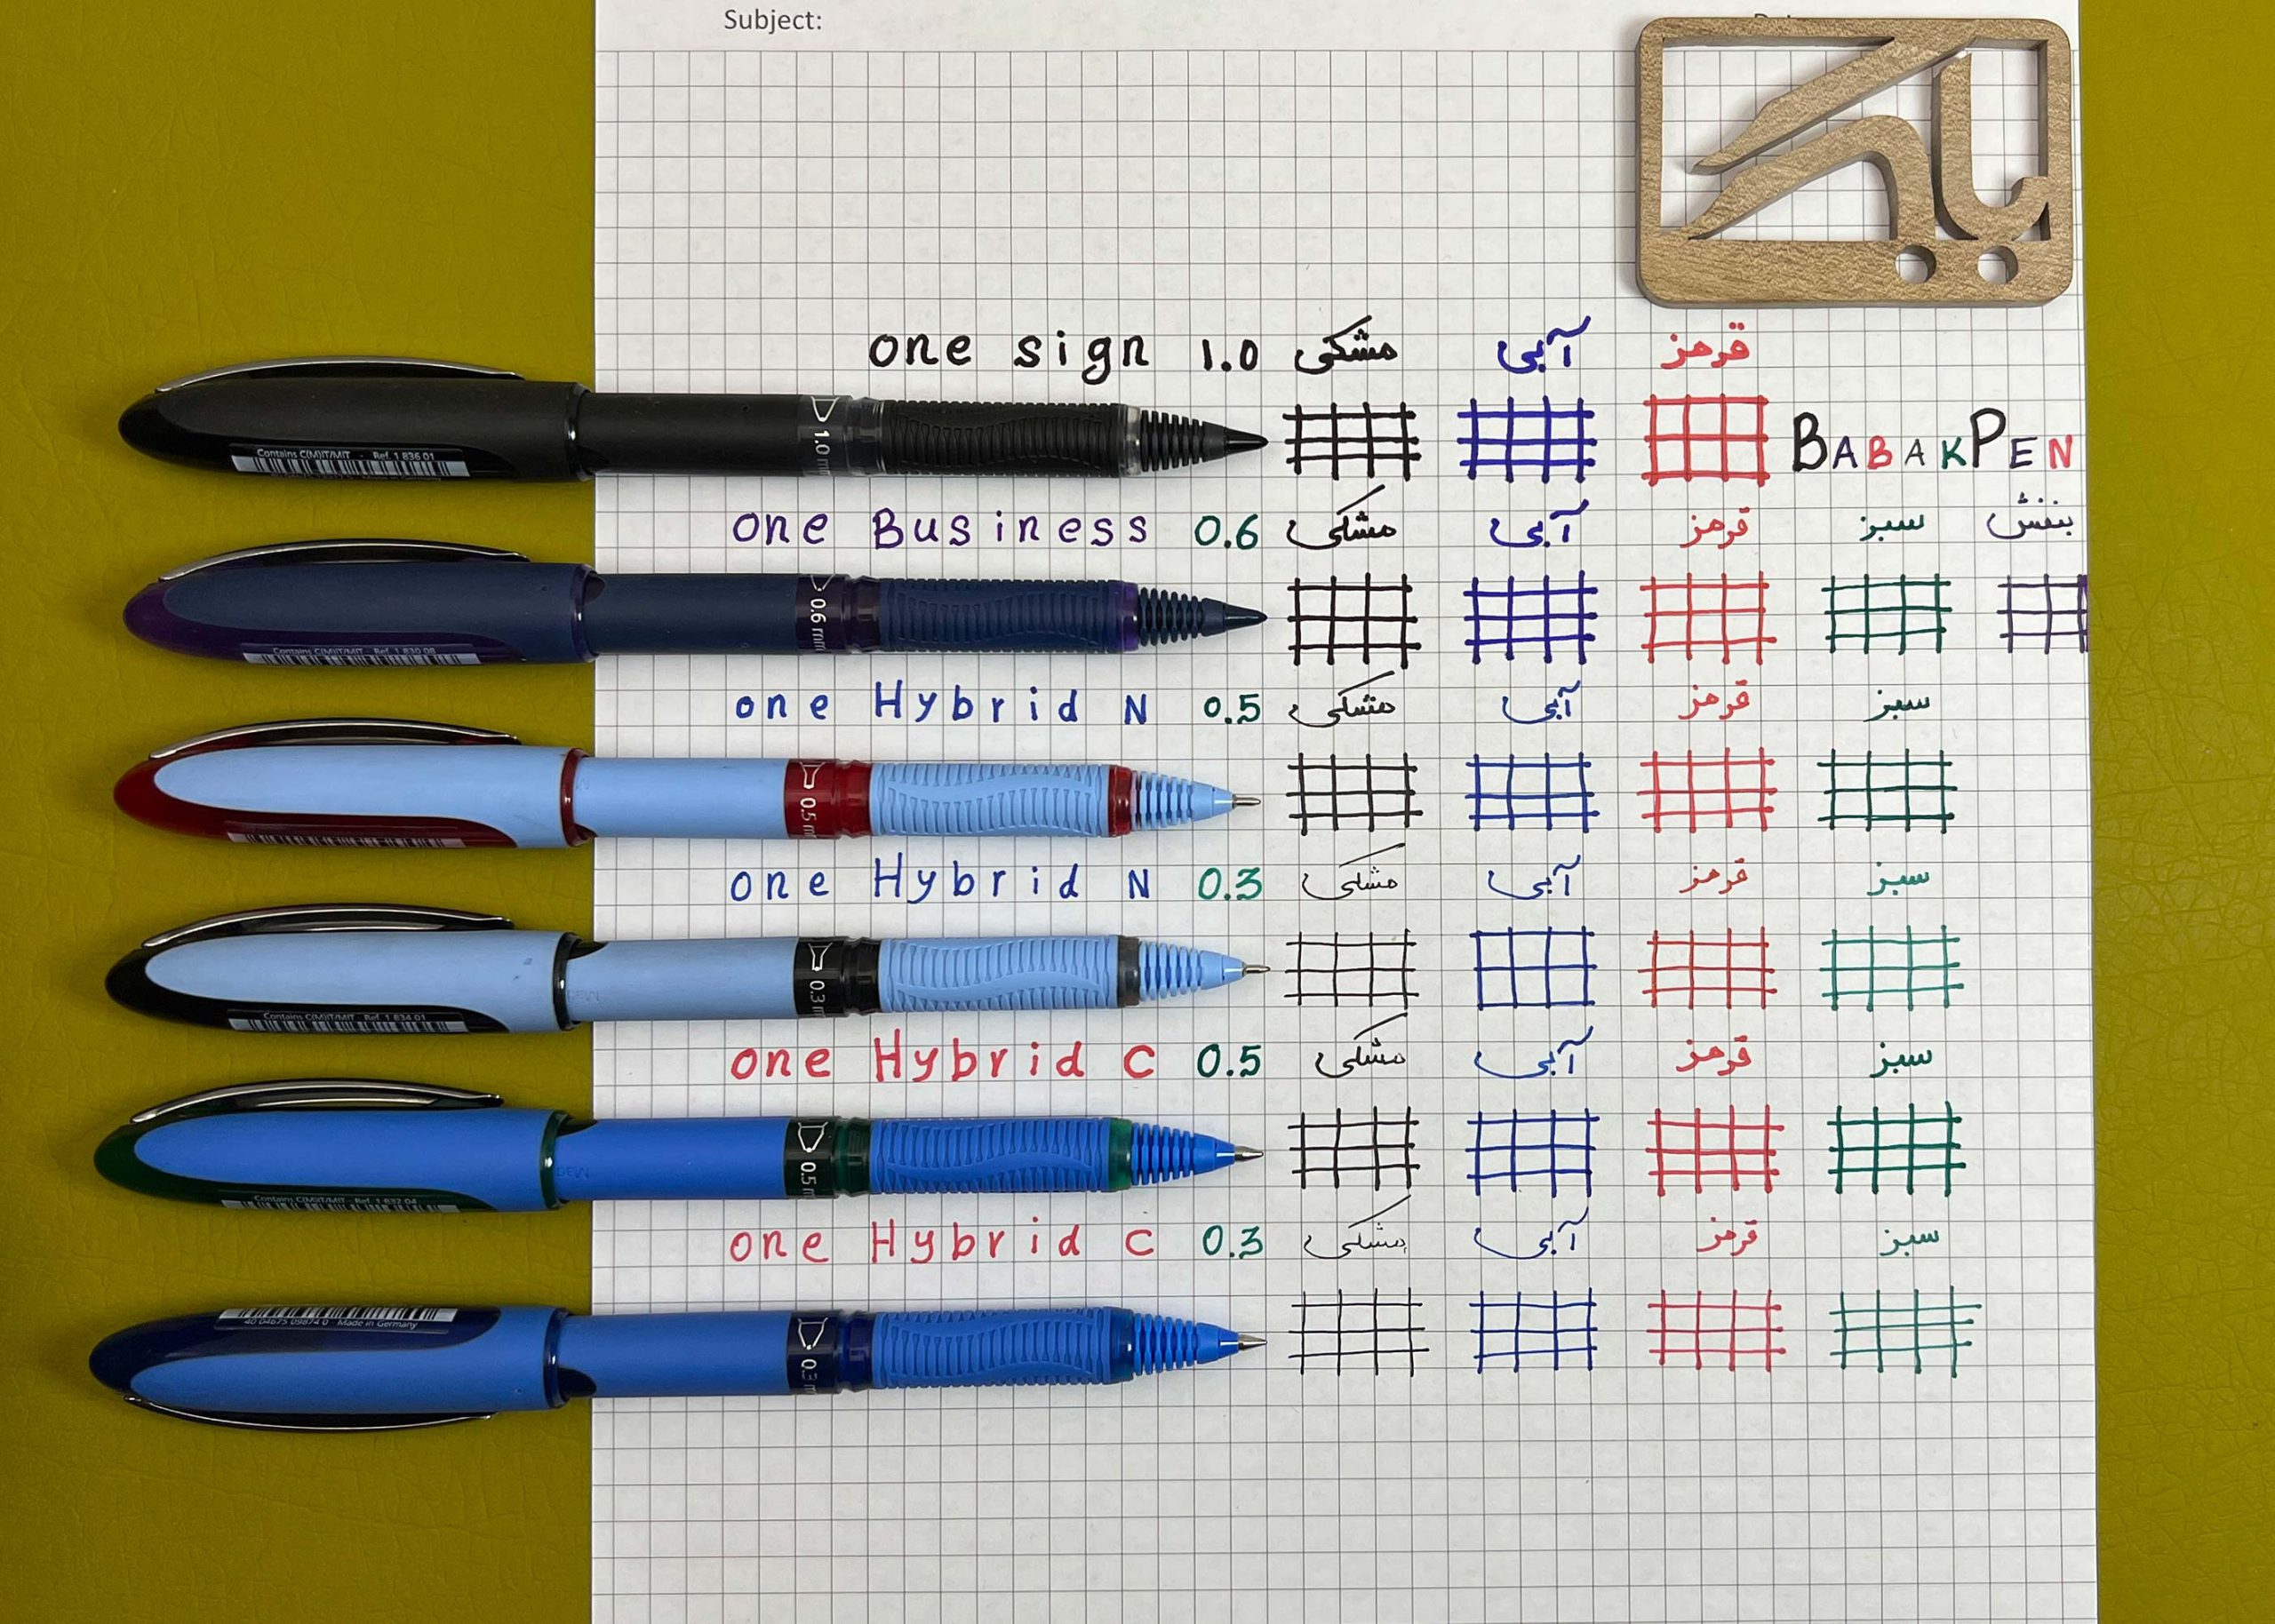 Subject:
one sign 1.0 مشکی آبی قرمز
1.0 mm
Contains C(M)IT/MIT - Ref. 1 836 01
BABAKPEN
one Business 0.6 مشکی آبی قرمز سبز بنفش
0.6 mm
Contains C(M)IT/MIT - Ref. 1 830 08
one Hybrid N 0.5 مشکی آبی قرمز سبز
0.5 m
one Hybrid N 0.3 مشکی آبی قرمز سبز
0.3 m
Contains C(M)IT/MIT - Ref. 1 834 01
one Hybrid C 0.5 مشکی آبی قرمز سبز
0.5 m
Contains C(M)IT/MIT - Ref. 1 832 04
one Hybrid C 0.3 مشکی آبی قرمز سبز
40 04675 09874 0 Made in Germany
0.3 m